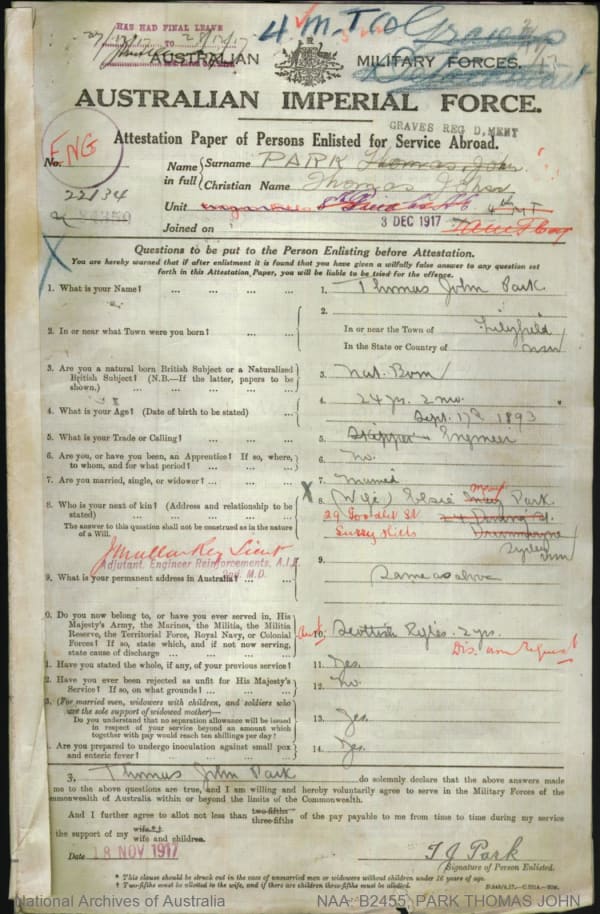 HAS HAD FINAL LEAVE
TO
4 M.T Co
AUSTRALIAN MILITARY FORCES.
AUSTRALIAN IMPERIAL FORCE.
GRAVES REG D, MENT
Attestation Paper of Persons Enlisted for Service Abroad.
ENG
No.
22134
Name in full
Surname PARK Thomas John
Christian Name Thomas John
Unit
Joined on 3 DEC 1917
Questions to be put to the Person Enlisting before Attestation.
You are hereby warned that if after enlistment it is found that you have given a wilfully false answer to any question set
forth in this Attestation Paper, you will be liable to be tried for the offence.
1. What is your Name? ... ... ... ...
1. Thomas John Park
2. In or near what Town were you born? ... ...
2.
In or near the Town of Lilyfield
In the State or Country of NSW
3. Are you a natural born British Subject or a Naturalised
British Subject? (N.B.—If the latter, papers to be
shown.) ... ... ... ...
3. Nat. Born
4. What is your Age? (Date of birth to be stated) ...
4. 24 yrs. 2 mo.
Sept. 17th 1893
5. What is your Trade or Calling? ... ... ...
5. Engineer
6. Are you, or have you been, an Apprentice? If so, where,
to whom, and for what period? ... ... ...
6. No.
7. Are you married, single, or widower? ... ...
7. Married
8. Who is your next of kin? (Address and relationship to be
stated) ... ... ... ...
The answer to this question shall not be construed as in the nature
of a Will.
8. (Wife) Elsie May Park.
29 Goodlet St
Surry Hills
Sydney NSW
Lieut
Adjutant, Engineer Reinforcements, A.I.F.
2nd. M.D.
9. What is your permanent address in Australia? ...
9.
Same as above
0. Do you now belong to, or have you ever served in, His
Majesty's Army, the Marines, the Militia, the Militia
Reserve, the Territorial Force, Royal Navy, or Colonial
Forces? If so, state which, and if not now serving,
state cause of discharge ... ... ...
10. Scottish Rifles. 2 yrs.
Dis. own Request
1. Have you stated the whole, if any, of your previous service?
11. Yes.
2. Have you ever been rejected as unfit for His Majesty's
Service? If so, on what grounds? ... ... ...
12. No.
3. (For married men, widowers with children, and soldiers who
are the sole support of widowed mother)—
Do you understand that no separation allowance will be issued
in respect of your service beyond an amount which
together with pay would reach ten shillings per day?
13. Yes.
4. Are you prepared to undergo inoculation against small pox
and enteric fever? ... ... ... ...
14. Yes.
3, Thomas John Park do solemnly declare that the above answers made
me to the above questions are true, and I am willing and hereby voluntarily agree to serve in the Military Forces of the
mmonwealth of Australia within or beyond the limits of the Commonwealth.
And I further agree to allot not less than two-fifths three-fifths of the pay payable to me from time to time during my service
the support of my wife † wife and children.
Date 18 NOV 1917
T J Park
Signature of Person Enlisted.
* This clause should be struck out in the case of unmarried men or widowers without children under 16 years of age.
† Two-fifths must be allotted to the wife, and if there are children three-fifths must be allotted.
National Archives of Australia
NAA: B2455, PARK THOMAS JOHN